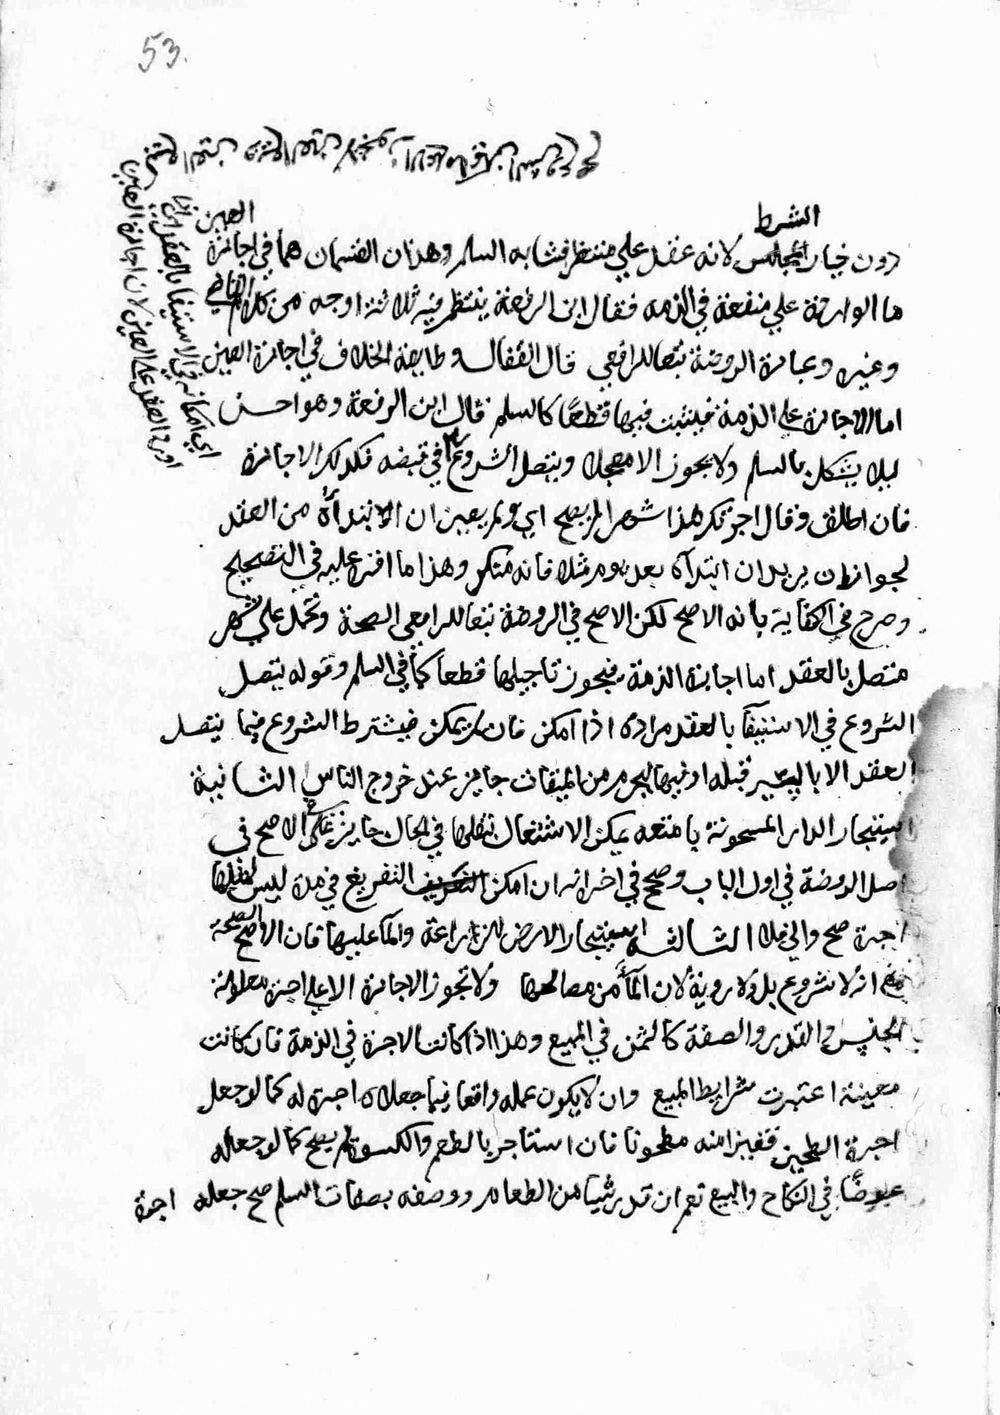 53.
الشرط
العين
دون خيار المجلس لانه عقد علي منتظر فشابه السلم وهذان القسمان هما في اجازة
ما الواردة علي منفعة في الذمه فقال ابن الرفعة ينتظم فيه ثلاثة اوجه من كلام الرافعي
وغيره وعبارة الروضة تبعا للرافعي قال القفال وطايفة الخلاف في اجارة العين
اما الاجارة علي الذمة فيثبت فيها قطعًا كالسلم قال ابن الرفعة وهو احسن
ليلا يشكل بالسلم ولا يجوز الا معجلا ويتصل الشروع في قبضه فكذلك الاجارة
فان اطلق وقال اجرتك هذا شهرا لم يصح اي ولم يعين ان الابتداء من العقد
لجواز ان يريد ان ابتدآه بعد يوم مثلا فانه متكرر وهذا ما اقره عليه في التصحيح
وصرح في الكفاية بانه الاصح لكن الاصح في الروضة تبعا للرافعي الصحة وتحمل علي شهر
متصل بالعقد اما اجارة الذمة فيجوز تاجيلها قطعا كما في السلم وقوله يتصل
الشروع في الاستيفآ بالعقد مراده اذا امكن فان لم يمكن فيشترط الشروع فيما يتصل
العقد الا بالسير قبله او فيها ليحرم من الميقات جايز عند خروج الناس الثانية
استيجار الدار المسحونة بامتعه يمكن الاشتغال بنقلها في الحال جايز علي الاصح في
اصل الروضة في اول الباب وصحح في اخر انه ان امكن التفريغ في مدة ليس لمثلها
اجرة صح والا فلا الثالثة استيجار الارض للزراعة والمآ عليها فان الاصح الصحة
مع انه لا شروع بل ولا روية لان المآ من مصالحها ولا تجوز الاجارة الا علي اجرة معلومة
الجنس والقدر والصفة كالثمن في المبيع وهذا اذا كانت الاجرة في الذمة فان كانت
معينة اعتبرت شرايط المبيع وان لا يكون عمله واقعا فيما جعلاه اجرة له كما لو جعل
اجرة الطحين قفيزا منه مطحونا فان استاجر بالطعم والكسوة لم يصح كما لو جعله
عوضًا في النكاح والبيع نعم ان قدر شيا من الطعام ووصفه بصفات السلم صح جعله اجرة
اي امكانه في الاستيفا بالعقد
اورد العقد علي العين لان اجارة العين